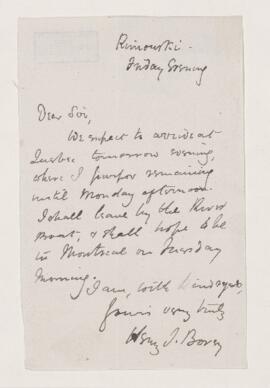 Rimouski.
Friday Evening
Dear Sir,
We expect to arrive at
Quebec tomorrow evening,
where I purpose remaining
until Monday afternoon.
I shall leave by the River
Boat, & shall hope to be
in Montreal on Tuesday
Morning.
I am, with kind regards,
Yours very truly
Henry J. Bovey